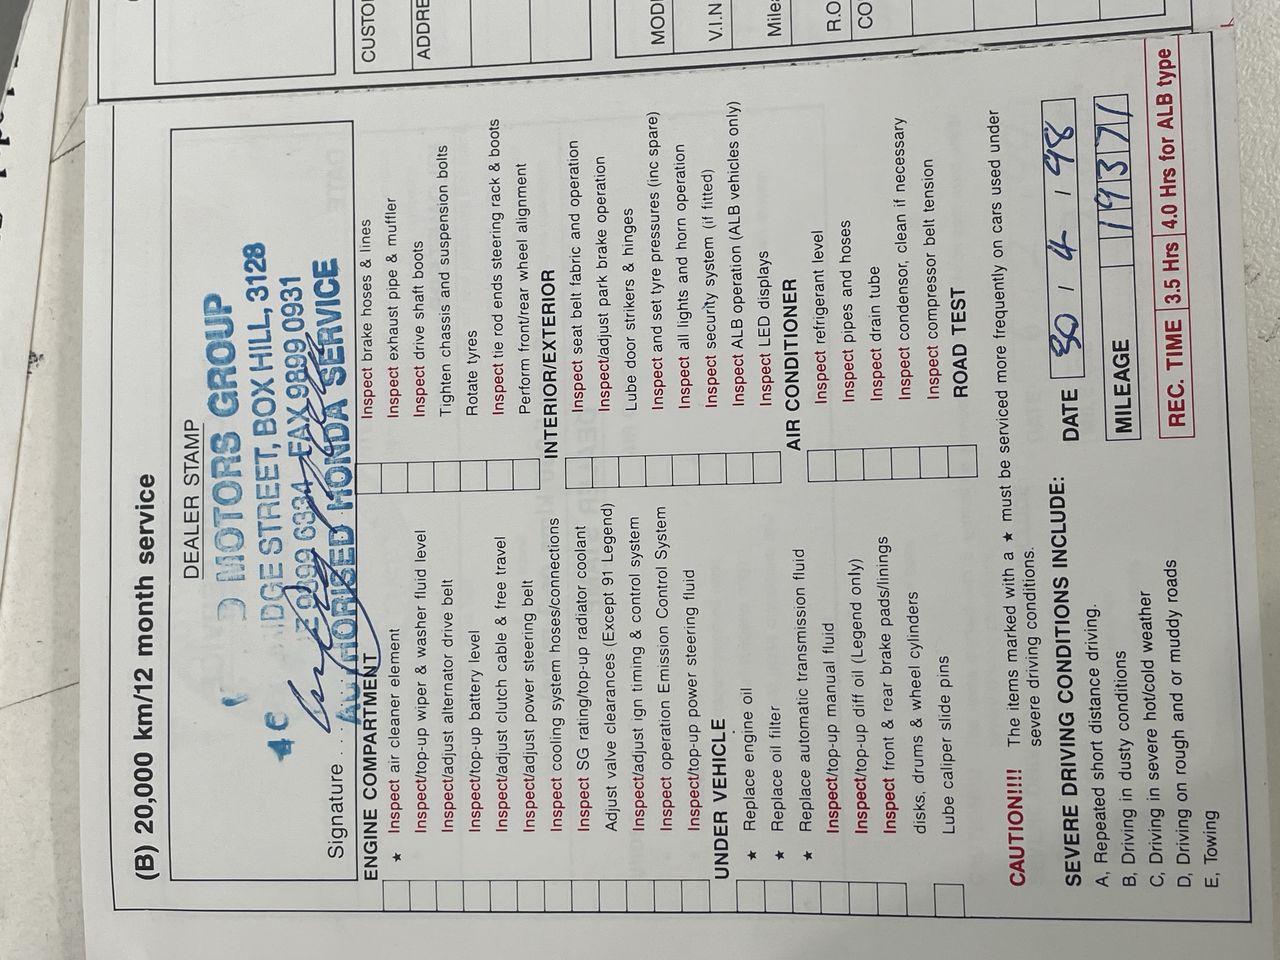 (B) 20,000 km/12 month service
DEALER STAMP
D MOTORS GROUP
40
DGE STREET, BOX HILL, 3128
9899 6334 FAX 9899 0931
AUTHORISED HONDA SERVICE
Signature
ENGINE COMPARTMENT
★ Inspect air cleaner element
Inspect/top-up wiper & washer fluid level
Inspect/adjust alternator drive belt
Inspect/top-up battery level
Inspect/adjust clutch cable & free travel
Inspect/adjust power steering belt
Inspect cooling system hoses/connections
Inspect SG rating/top-up radiator coolant
Adjust valve clearances (Except 91 Legend)
Inspect/adjust ign timing & control system
Inspect operation Emission Control System
Inspect/top-up power steering fluid
UNDER VEHICLE
★ Replace engine oil
★ Replace oil filter
★ Replace automatic transmission fluid
Inspect/top-up manual fluid
Inspect/top-up diff oil (Legend only)
Inspect front & rear brake pads/linings
disks, drums & wheel cylinders
Lube caliper slide pins
Inspect brake hoses & lines
Inspect exhaust pipe & muffler
Inspect drive shaft boots
Tighten chassis and suspension bolts
Rotate tyres
Inspect tie rod ends steering rack & boots
Perform front/rear wheel alignment
INTERIOR/EXTERIOR
Inspect seat belt fabric and operation
Inspect/adjust park brake operation
Lube door strikers & hinges
Inspect and set tyre pressures (inc spare)
Inspect all lights and horn operation
Inspect security system (if fitted)
Inspect ALB operation (ALB vehicles only)
Inspect LED displays
AIR CONDITIONER
Inspect refrigerant level
Inspect pipes and hoses
Inspect drain tube
Inspect condensor, clean if necessary
Inspect compressor belt tension
ROAD TEST
CAUTION!!!! The items marked with a ★ must be serviced more frequently on cars used under
severe driving conditions.
SEVERE DRIVING CONDITIONS INCLUDE:
A, Repeated short distance driving.
B, Driving in dusty conditions
C, Driving in severe hot/cold weather
D, Driving on rough and or muddy roads
E, Towing
DATE 30 / 4 / 98
MILEAGE 19371
REC. TIME 3.5 Hrs 4.0 Hrs for ALB type
V.I.N
R.O